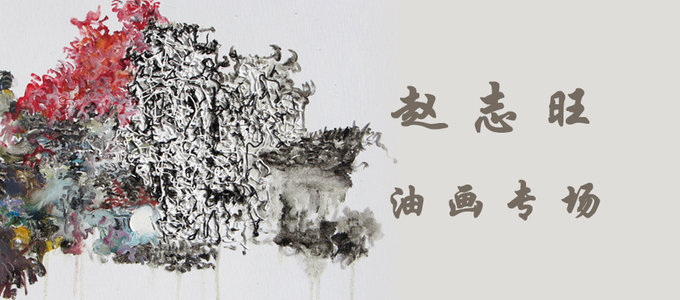 赵志旺
油画专场